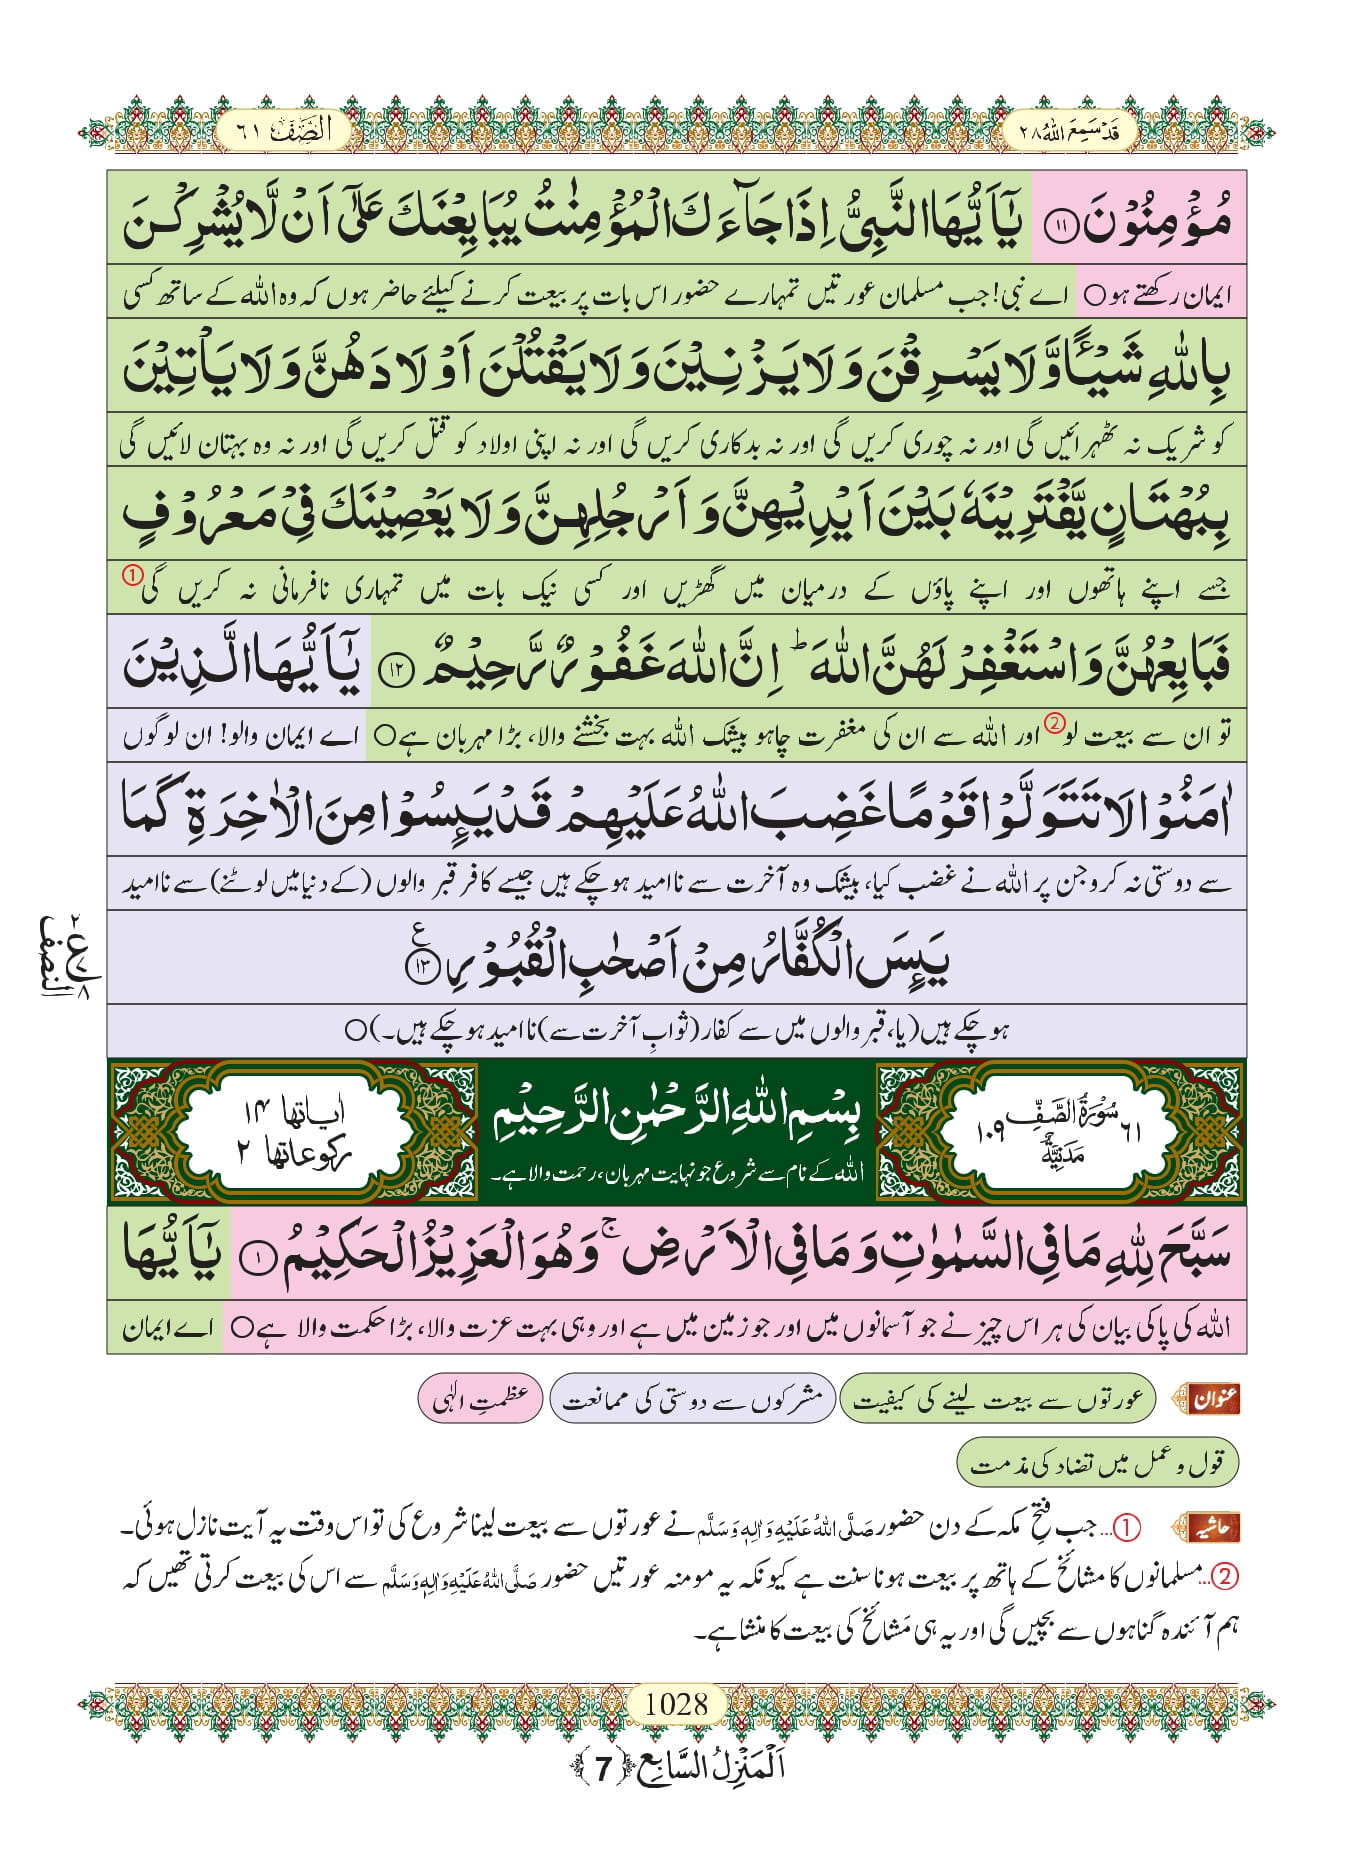 قَدْ سَمِعَ اللّٰهُ ٢٨
الصَّفّ ٦١
مُؤْمِنُوْنَ ﴿۱۱﴾ یٰۤاَیُّهَا النَّبِیُّ اِذَا جَآءَكَ الْمُؤْمِنٰتُ یُبَایِعْنَكَ عَلٰۤى اَنْ لَّا یُشْرِكْنَ
ایمان رکھتے ہو○ اے نبی! جب مسلمان عورتیں تمہارے حضور اس بات پر بیعت کرنے کیلئے حاضر ہوں کہ وہ اللہ کے ساتھ کسی
بِاللّٰهِ شَیْــٴًـا وَّ لَا یَسْرِقْنَ وَ لَا یَزْنِیْنَ وَ لَا یَقْتُلْنَ اَوْلَادَهُنَّ وَ لَا یَاْتِیْنَ
کو شریک نہ ٹھہرائیں گی اور نہ چوری کریں گی اور نہ بدکاری کریں گی اور نہ اپنی اولاد کو قتل کریں گی اور نہ وہ بہتان لائیں گی
بِبُهْتَانٍ یَّفْتَرِیْنَهٗ بَیْنَ اَیْدِیْهِنَّ وَ اَرْجُلِهِنَّ وَ لَا یَعْصِیْنَكَ فِیْ مَعْرُوْفٍ
جسے اپنے ہاتھوں اور اپنے پاؤں کے درمیان میں گھڑیں اور کسی نیک بات میں تمہاری نافرمانی نہ کریں گی①
فَبَایِعْهُنَّ وَ اسْتَغْفِرْ لَهُنَّ اللّٰهَؕ اِنَّ اللّٰهَ غَفُوْرٌ رَّحِیْمٌ ﴿۱۲﴾ یٰۤاَیُّهَا الَّذِیْنَ
تو ان سے بیعت لو② اور اللہ سے ان کی مغفرت چاہو بیشک اللہ بہت بخشنے والا، بڑا مہربان ہے○ اے ایمان والو! ان لوگوں
اٰمَنُوْا لَا تَتَوَلَّوْا قَوْمًا غَضِبَ اللّٰهُ عَلَیْهِمْ قَدْ یَىٕسُوْا مِنَ الْاٰخِرَةِ كَمَا
سے دوستی نہ کرو جن پر اللہ نے غضب کیا، بیشک وہ آخرت سے ناامید ہوچکے ہیں جیسے کافر قبر والوں (کے دنیا میں لوٹنے) سے ناامید
یَىٕسَ الْكُفَّارُ مِنْ اَصْحٰبِ الْقُبُوْرِ ﴿۱۳﴾ ع
٢ ع ٨ النصف
ہوچکے ہیں (یا، قبر والوں میں سے کفار (ثوابِ آخرت سے) ناامید ہوچکے ہیں۔)○
٦١ سُوْرَةُ الصَّفِّ مَدَنِیَّةٌ ١٠٩
بِسْمِ اللّٰهِ الرَّحْمٰنِ الرَّحِیْمِ
اللہ کے نام سے شروع جو نہایت مہربان، رحمت والا ہے۔
اٰیاتها ١٤
رکوعاتها ٢
سَبَّحَ لِلّٰهِ مَا فِی السَّمٰوٰتِ وَ مَا فِی الْاَرْضِۚ وَ هُوَ الْعَزِیْزُ الْحَكِیْمُ ﴿۱﴾ یٰۤاَیُّهَا
اللہ کی پاکی بیان کی ہر اس چیز نے جو آسمانوں میں اور جو زمین میں ہے اور وہی بہت عزت والا، بڑا حکمت والا ہے○ اے ایمان
عنوان عورتوں سے بیعت لینے کی کیفیت مشرکوں سے دوستی کی ممانعت عظمتِ الٰہی
قول و عمل میں تضاد کی مذمت
حاشیہ ①... جب فتحِ مکہ کے دن حضور صَلَّی اللهُ عَلَیْهِ وَاٰلِهٖ وَسَلَّم نے عورتوں سے بیعت لینا شروع کی تو اس وقت یہ آیت نازل ہوئی۔
②... مسلمانوں کا مشائخ کے ہاتھ پر بیعت ہونا سنت ہے کیونکہ یہ مومنہ عورتیں حضور صَلَّی اللهُ عَلَیْهِ وَاٰلِهٖ وَسَلَّم سے اس کی بیعت کرتی تھیں کہ
ہم آئندہ گناہوں سے بچیں گی اور یہ ہی مَشائخ کی بیعت کا منشا ہے۔
1028
اَلْمَنْزِلُ السَّابِع ﴿7﴾